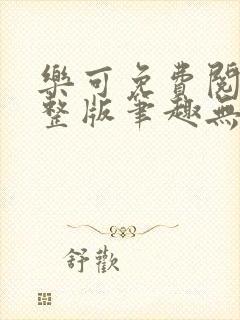 樂可免費閱
整版筆趣無
舒歡